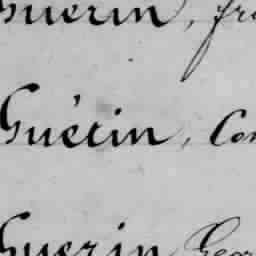 Guerin, fr
Guétin, Con
Guerin Geor